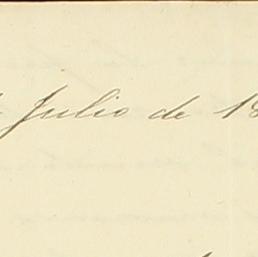 Julio de 18